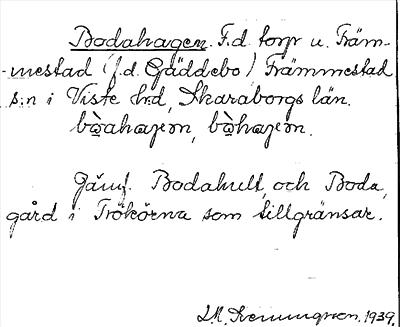 Bodahagen. F.d. torp u. Främ-
-mestad (f.d. Gäddebo) Främmestad
s:n i Viste hrd, Skaraborgs län.
bòahajen, bòhajen.
Jämf. Bodahult, och Boda,
gård i Trökörna som tillgränsar.
1939.